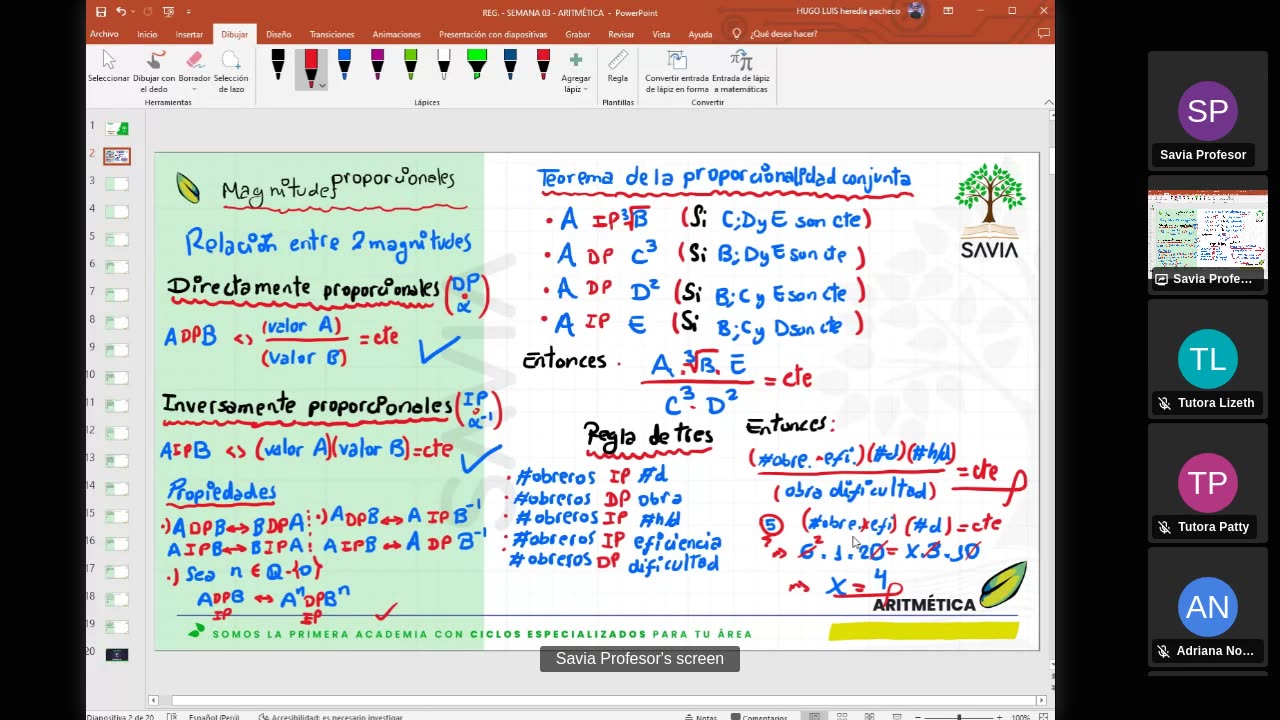 REG. - SEMANA 03 - ARITMÉTICA - PowerPoint
HUGO LUIS heredia pacheco
Archivo Inicio Insertar Dibujar Diseño Transiciones Animaciones Presentación con diapositivas Grabar Revisar Vista Ayuda ¿Qué desea hacer?
Seleccionar Dibujar con el dedo Borrador Selección de lazo
Agregar lápiz Regla Convertir entrada de lápiz en forma Entrada de lápiz a matemáticas
Herramientas Lápices Plantillas Convertir
1
2
3
4
5
6
7
8
9
10
11
12
13
14
15
16
17
18
19
20
Magnitudes proporcionales
Relación entre 2 magnitudes
Directamente proporcionales (DP ∝)
A DP B <> (valor A) / (valor B) = cte
Inversamente proporcionales (IP ∝⁻¹)
A IP B <> (valor A)(valor B) = cte
Propiedades
•) A DP B ↔ B DP A •) A DP B ↔ A IP B⁻¹
A IP B ↔ B IP A A IP B ↔ A DP B⁻¹
•) Sea n ∈ Q-{0}
A DP B ↔ Aⁿ DP Bⁿ
IP IP
Teorema de la proporcionalidad conjunta
• A IP ³√B (Si C; D y E son cte)
• A DP C³ (Si B; D y E son cte)
• A DP D² (Si B; C y E son cte)
• A IP E (Si B; C y D son cte)
Entonces
A · ³√B · E / C³ · D² = cte
Regla de tres
• #obreros IP #d
• #obreros DP obra
• #obreros IP #h/d
• #obreros IP eficiencia
#obreros DP dificultad
Entonces:
(#obre. - efi.)(#d)(#h/d) / (obra dificultad) = cte
5 (#obre. x efi) (#d) = cte
⇒ 6 . 1 . 20 = x . 3 . 10
2
⇒ x = 4
SAVIA
SAVIA
ARITMÉTICA
SOMOS LA PRIMERA ACADEMIA CON CICLOS ESPECIALIZADOS PARA TU ÁREA
Savia Profesor's screen
Diapositiva 2 de 20 Español (Perú) Accesibilidad: es necesario investigar Notas Comentarios 100%
SP
Savia Profesor
Savia Profe...
TL
Tutora Lizeth
TP
Tutora Patty
AN
Adriana No...